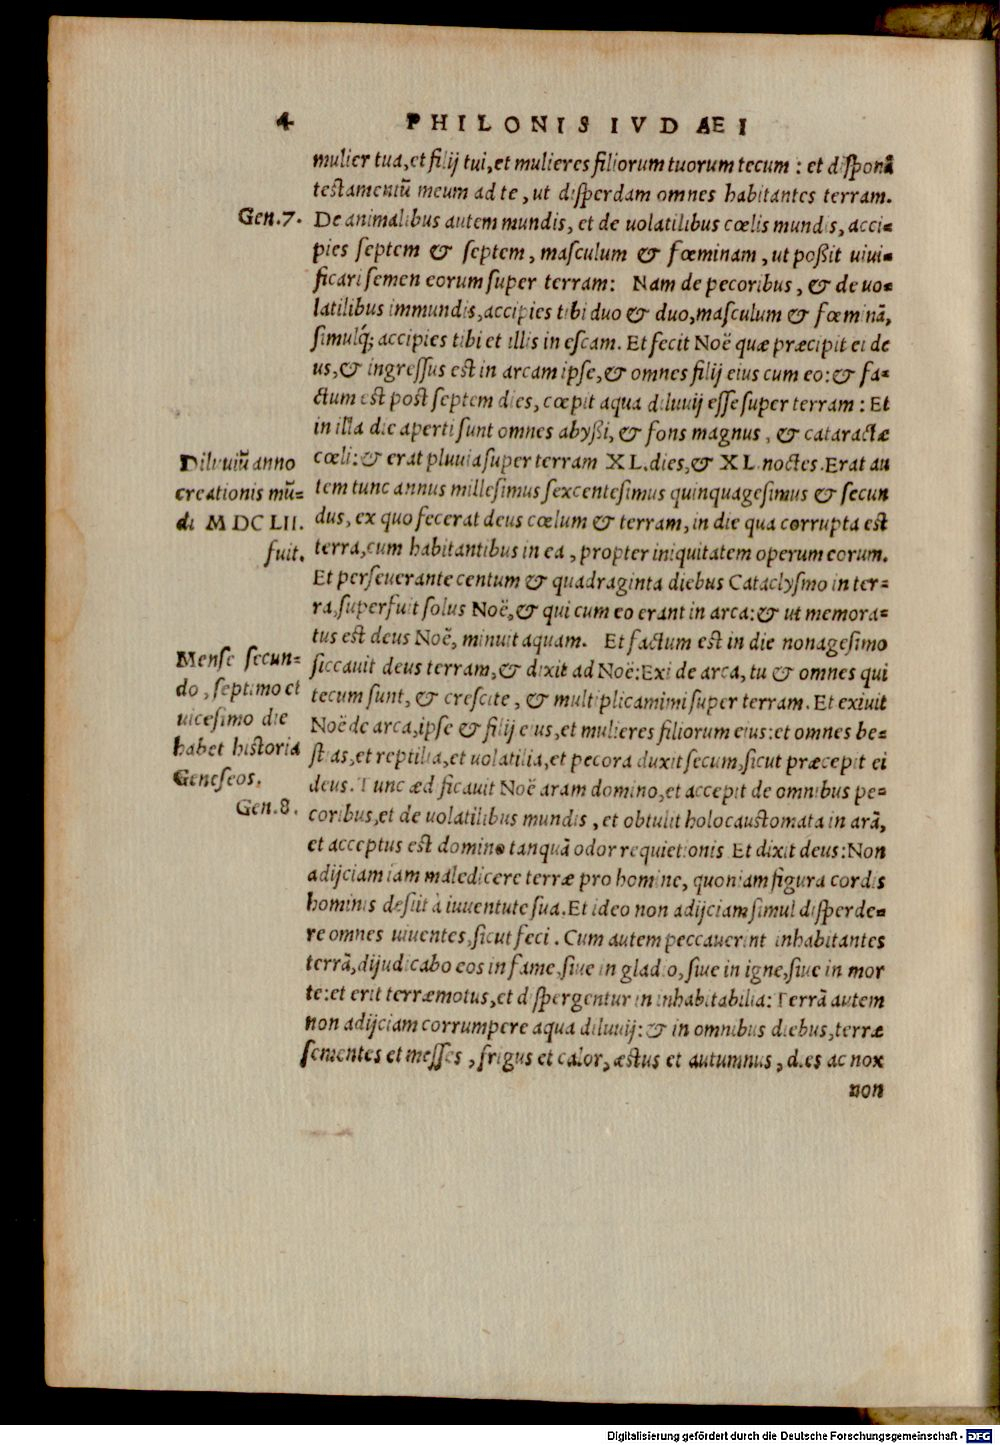 4 PHILONIS IVDAEI
mulier tua, et filij tui, et mulieres filiorum tuorum tecum : et disponā
testamentū meum ad te, ut disperdam omnes habitantes terram.
Gen. 7. De animalibus autem mundis, et de uolatilibus cœlis mundis, acci-
pies septem & septem, masculum & fœminam, ut poßit uiui-
ficari semen eorum super terram: Nam de pecoribus, & de uo-
latilibus immundis, accipies tibi duo & duo, masculum & fœminā,
simulq́; accipies tibi et illis in escam. Et fecit Noë quæ præcipit ei de
us, & ingressus est in arcam ipse, & omnes filij eius cum eo: & fa-
ctum est post septem dies, cœpit aqua diluuij esse super terram : Et
in illa die aperti sunt omnes abyßi, & fons magnus, & cataractæ
Diluuiū anno
creationis mū-
di MDCLII.
fuit.
cœli: & erat pluuia super terram XL. dies, & XL. noctes. Erat au
tem tunc annus millesimus sexcentesimus quinquagesimus & secun
dus, ex quo fecerat deus cœlum & terram, in die qua corrupta est
terra, cum habitantibus in ea, propter iniquitatem operum eorum.
Et perseuerante centum & quadraginta diebus Cataclysmo in ter-
ra, superfuit solus Noë, & qui cum eo erant in arca: & ut memora-
tus est deus Noë, minuit aquam. Et factum est in die nonagesimo
Mense secun-
do, septimo et
uicesimo die
habet historia
Geneseos.
siccauit deus terram, & dixit ad Noë: Exi de arca, tu & omnes qui
tecum sunt, & crescite, & multiplicamimi super terram. Et exiuit
Noë de arca, ipse & filij eius, et mulieres filiorum eius: et omnes be-
stias, et reptilia, et uolatilia, et pecora duxit secum, sicut præcepit ei
deus. Tunc ædificauit Noë aram domino, et accepit de omnibus pe-
Gen. 8.
coribus, et de uolatilibus mundis, et obtulit holocaustomata in arā,
et acceptus est domino tanquā odor requietionis Et dixit deus: Non
adijciam iam maledicere terræ pro homine, quoniam figura cordis
hominis desiit à iuuentute sua. Et ideo non adijciam simul disperde-
re omnes uiuentes, sicut feci. Cum autem peccauerint inhabitantes
terrā, dijudicabo eos in fame, siue in gladio, siue in igne, siue in mor
te: et erit terræmotus, et dispergentur in inhabitabilia: Terrā autem
non adijciam corrumpere aqua diluuij: & in omnibus diebus, terræ
sementes et messes, frigus et calor, æstus et autumnus, dies ac nox
non
Digitalisierung gefördert durch die Deutsche Forschungsgemeinschaft - DFG